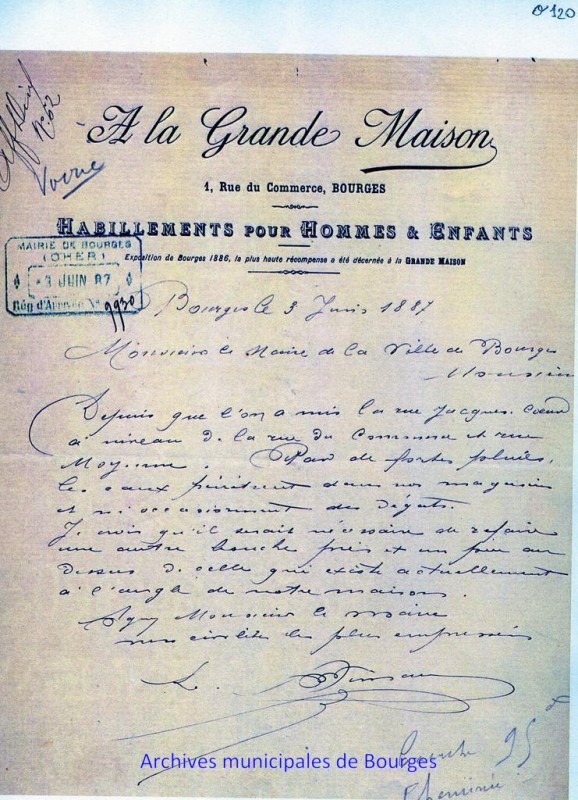 0120
N° 62
Voirie
A la Grande Maison
1, Rue du Commerce, BOURGES
HABILLEMENTS POUR HOMMES & ENFANTS
Exposition de Bourges 1886, la plus haute récompense a été décernée à la GRANDE MAISON
MAIRIE DE BOURGES
(CHER)
3 JUIN 87
Rég d'Arrivée N° 9930
Bourges le 3 Juin 1887
Monsieur le Maire de la Ville de Bourges
Monsieur
Depuis que l'on a mis la rue Jacques Coeur
à niveau de la rue du Commerce et rue
Moyenne. Par de fortes pluies,
les eaux pénètrent dans nos magasins
et n/ occasionnent des dégats.
Je crois qu'il serait nécessaire de refaire
une autre bouche près et un peu au
dessus de celle qui existe actuellement
à l'angle de notre maison.
Agréez Monsieur le Maire
mes civilités les plus empressées
Archives municipales de Bourges
95